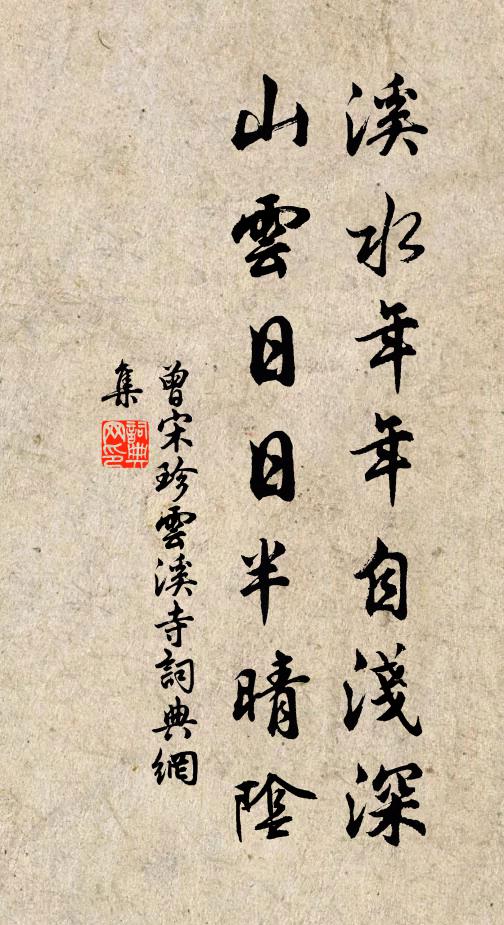 溪水年年自淺深
山雲日日半晴陰
曾宋珍雲溪寺詞典網
集
詞典
网印